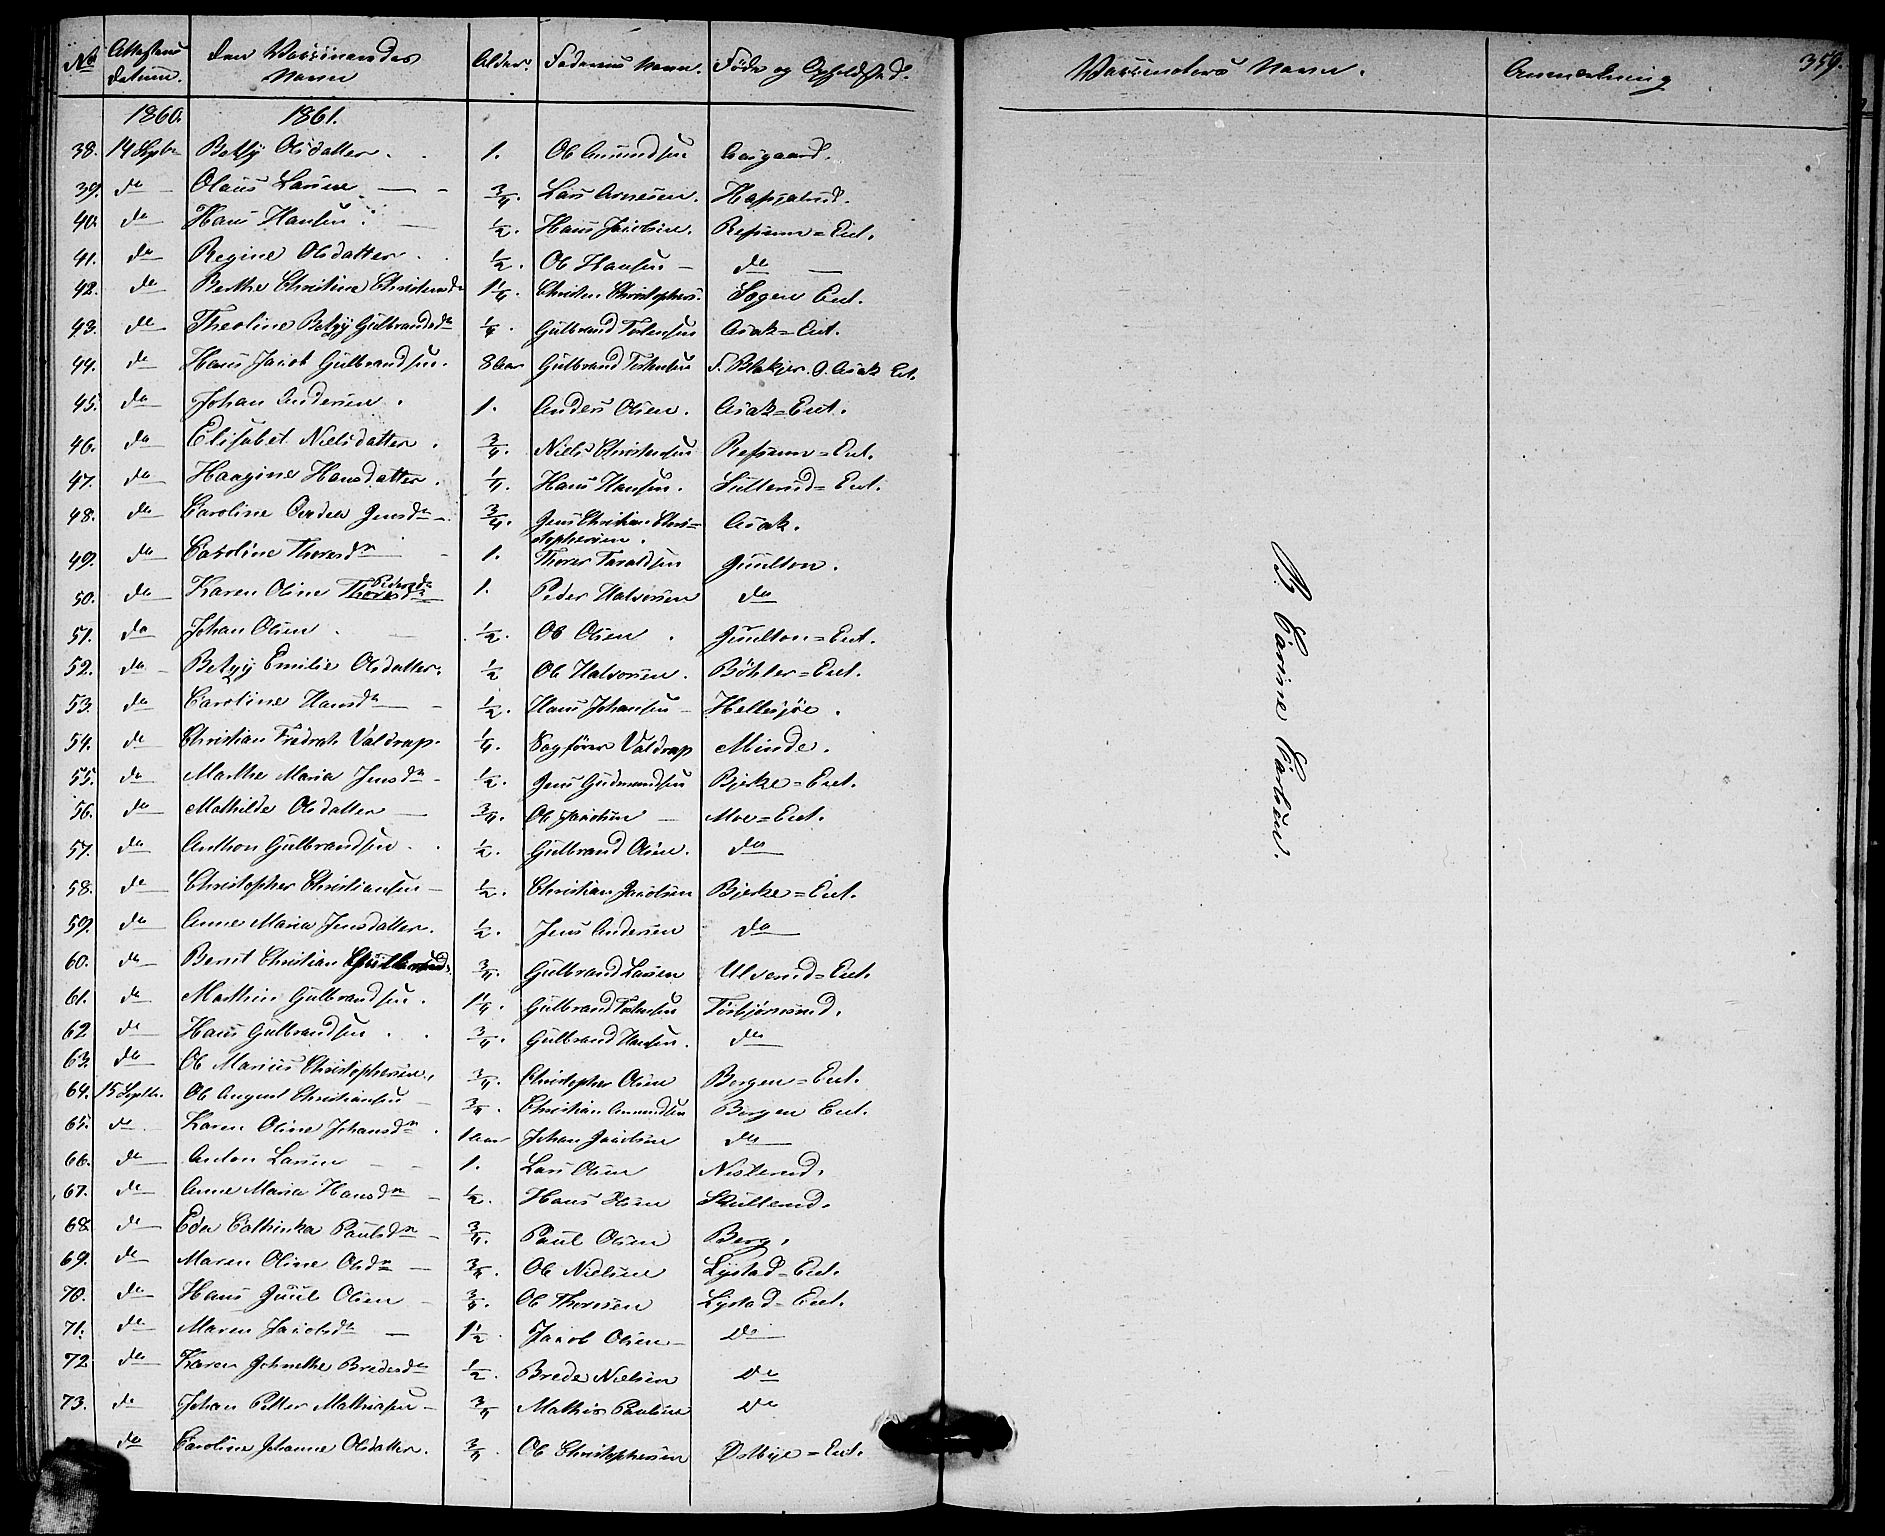 No Attestens Datum. Den Vaccineredes Navn Alder. Faderens Navn. Føde og Opholdsted. Vaccinateurs Navn. Anmærkning 359.
1860. 1861.
38. 14 Septr Betzy Olsdatter. 1. Ole Amundsen Aasgaard.
39. do Olaus Larsen 3/4. Lars Arnesen.
40. do Hans Hansen 1/2. Hans Jacobsen. Refsum=Eiet.
41. do Regine Olsdatter 1/2. Ole Hansen do
42. do Berthe Christine Christensdr 1 1/4. Christen Christophers. Eiet.
43. do Theoline Betzy Gulbrandsdr 1/4. Gulbrand Torstensen Asak=Eiet.
44. do Hans Jacob Gulbrandsen. 8 Aar Gulbrand Torstensen F. Blakjer. O. Asak Et.
45. do Johan Andersen. 1. Anders Olsen. Asak=Eiet.
46. do Elisabet Nielsdatter. 3/4. Niels Christensen Refsum=Eiet.
47. do Haagine Hansdatter. 1/4. Hans Hansen. =Eiet.
48. do Caroline Jensdr 3/4. Jens Christian Chri=
stophersen. Asak.
49. do Caroline Thoresdr 1. Thorer Taraldsen Juulton.
50. do Karen Oline Thoresdr Pedersdr 1. Peder Halvorsen do
51. do Johan Olsen. 1/2. Ole Olsen. Juulton=Eiet.
52. do Betzy Emilie Olsdatter. 1/2 Ole Halvorsen. Bøhler=Eiet.
53. do Caroline Hansdr 1/2. Hans Johansen Hellesjøe.
54. do Christian Fredrik Valdrap. 1/4. Sagfører Valdrap Minde.
55. do Marthe Maria Jensdr 1/2. Jens Gudmundsen Bjerke=Eiet.
56. do Mathilde Olsdatter 3/4. Ole Jacobsen Moe=Eiet.
57. do Anthon Gulbrandsen. 1/2. Gulbrand Olsen. do
58. do Christopher Christiansen 1/2. Christian Jacobsen Bjerke=Eiet.
59. do Anne Maria Jensdatter. 1/2. Jens Andersen do
60. do Bernt Christian 3/4. Gulbrand Larsen Ulverud=Eiet.
61. do Mathias Gulbrandsen. 1 1/4. Gulbrand Torstensen Torbjørnrud.
62 do Hans Gulbrandsen. 3/4. Gulbrand Hansen. do
63. do Ole Marius Christophersen. 3/4. Christopher Olsen Borgen=Eiet.
64. 15 Septbr. Ole August Christiansen 3/4. Christian Amundsen Borgen Eiet.
65. do Karen Oline Johansdr. 1 Aar Johan Jacobsen do
66. do Anton Larsen 1. Lars Olsen Nislerud.
67. do Anne Maria Hansdr 1/2. Hans Olsen Skullerud.
68. do Eda Cathinka Paulsdr 3/4. Paul Olsen Berg.
69. do Maren Oline Olsdr 3/4. Ole Nielsen Lystad=Eiet.
70. do Hans Juul Olsen 3/4. Ole Thoresen Lystad=Eiet.
71. do Maren Jacobsdr 1 1/2. Jacob Olsen Do
72 do Karen Johnethe Bredesdr 1/2. Brede Nielsen Do
73. do Johan Petter Mathisen 3/4 Mathis Paulsen Do
do Caroline Johanne Olsdatter. 3/4 Ole Christophersen Østbye=Eiet.
B. Carine Carlsen.